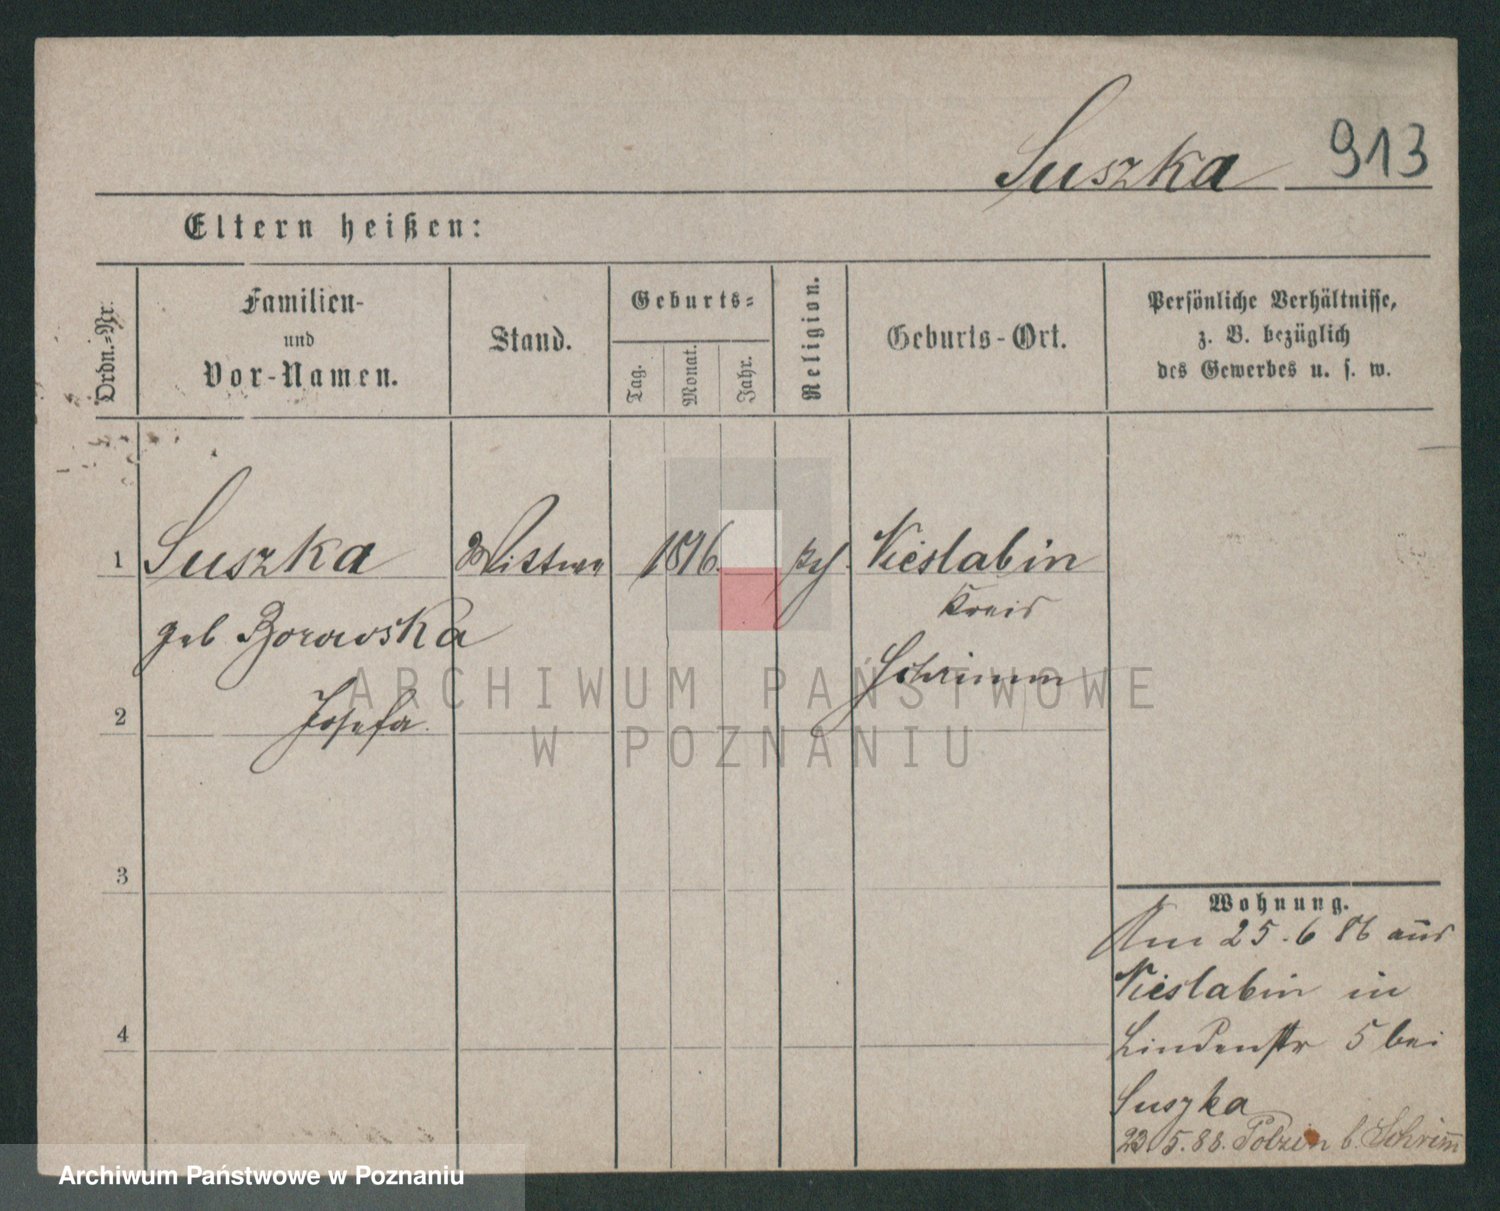 Suszka 913
Eltern heißen:
Ordn.=Nr.
Familien-
und
Vor-Namen.
Stand.
Geburts=
Tag.
Monat.
Jahr.
Religion.
Geburts-Ort.
Persönliche Verhältnisse,
z. B. bezüglich
des Gewerbes u. s. w.
1 Suszka Wittwe 1816. Nieslabin
Kreis
geb Borowska
Schrimm
2 Josefa.
3
4
Wohnung.
Am 25.6 86 aus
Nieslabin in
Lindenstr 5 bei
Suszka
23 5.88. b. Schrim̅
ARCHIWUM PAŃSTWOWE
W POZNANIU
Archiwum Państwowe w Poznaniu